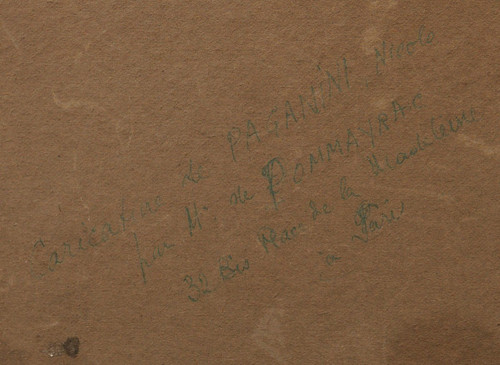 Caricature de PAGANINI Nicolo
par Mr de POMMAYRAC
32 bis Place de la Madeleine
à Paris